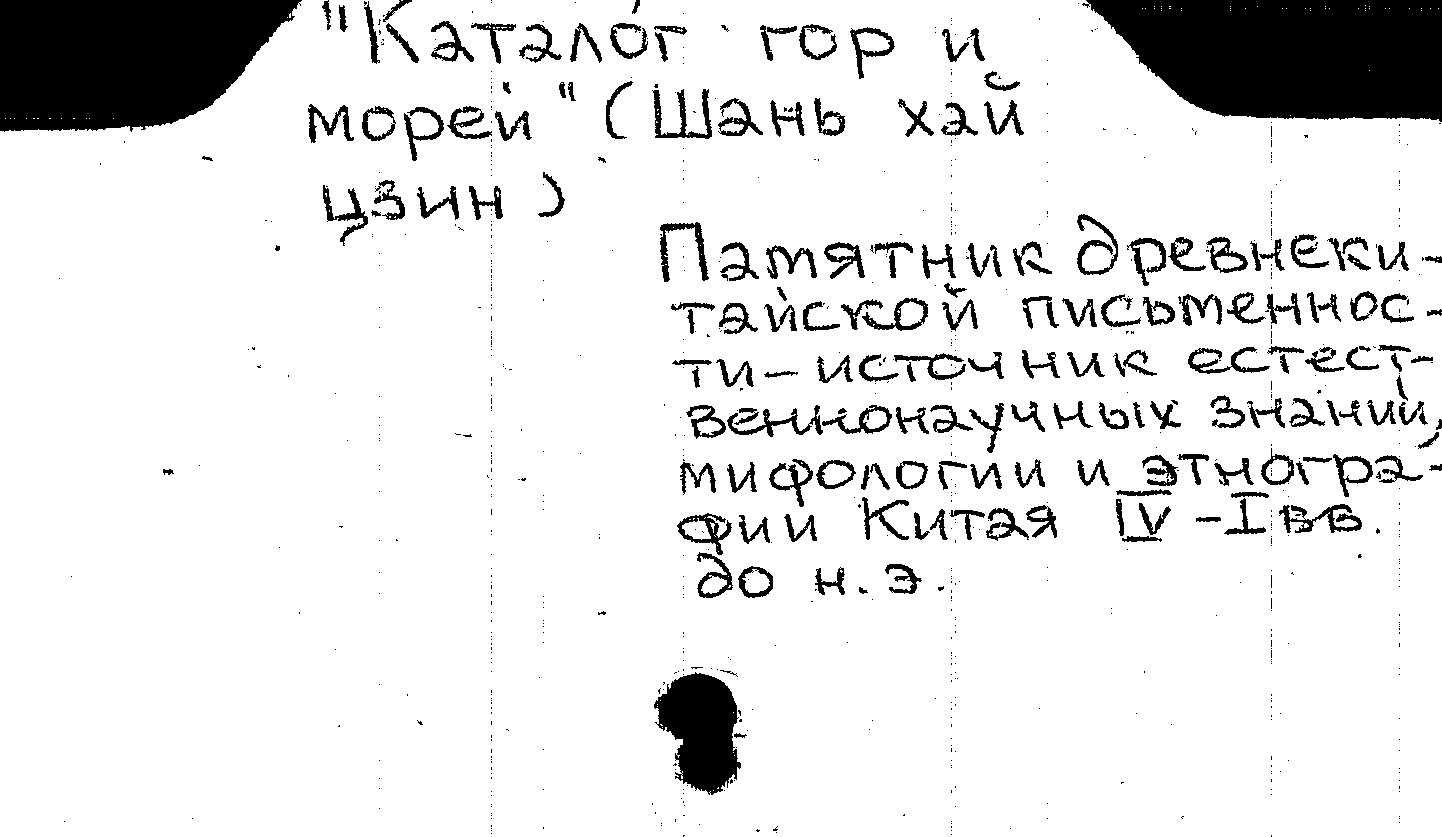 "Каталог гор и
морей" (Шань хай
цзин)
Памятник древнеки-
тайской письменнос-
ти - источник естест-
веннонаучных знаний,
мифологии и этногра-
фии Китая IV - I вв.
до н.э.